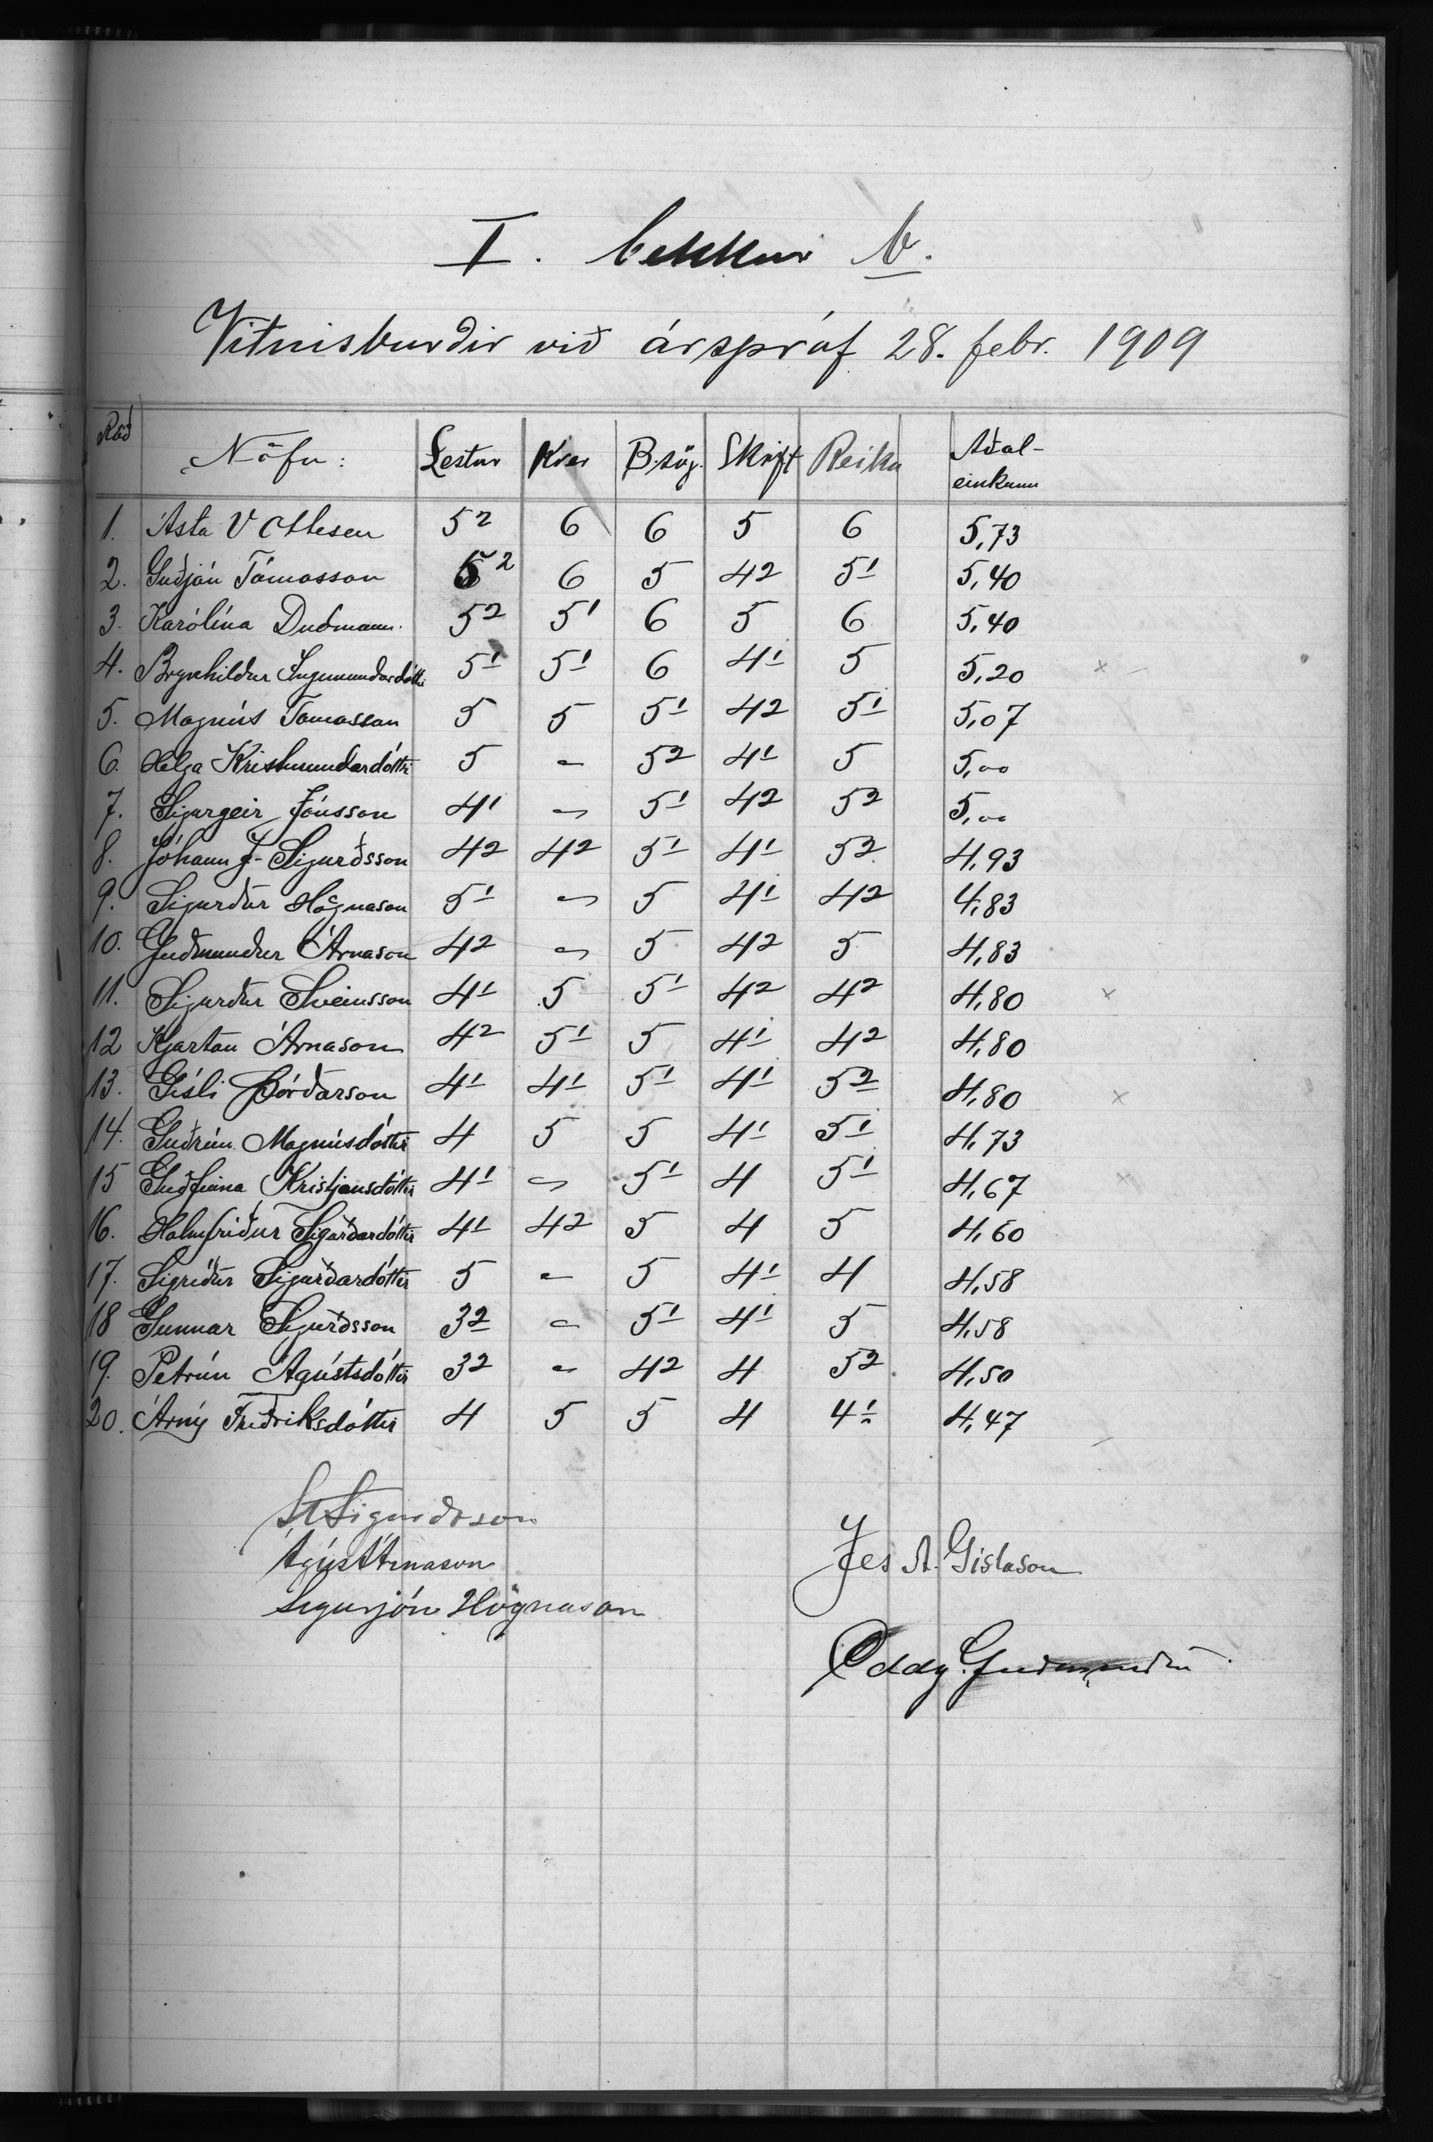 I. bekkur b.
Vitnisburðir við árspróf 28. febr. 1909
Röð Nöfn: Lestur Kver B.sög. Skrift Reikn Aðal-
einkunn
1. Ásta V Ottesen 5² 6 6 5 6 5,73
2. Guðjón Tómasson 5² 6 5 4² 5¹ 5,40
3. Karólína Dudmann. 5² 5¹ 6 5 6 5,40
4. Brynhildur Ingimundardóttir 5¹ 5¹ 6 4¹ 5 5,20 x
5. Magnús Tómasson 5 5 5¹ 4² 5¹ 5,07
6. Helga Kristmundardóttir 5 - 5² 4¹ 5 5,00
7. Sigurgeir Jónsson 4¹ - 5¹ 4² 5² 5,00
8. Jóhann J. Sigurðsson 4² 4² 5¹ 4¹ 5² 4,93
9. Sigurður Högnason 5¹ - 5 4¹ 4² 4,83
10. Guðmundur Árnason 4² - 5 4² 5 4,83
11. Sigurður Sveinsson 4¹ 5 5¹ 4² 4² 4,80 x
12 Kjartan Árnason 4² 5¹ 5 4¹ 4² 4,80
13. Gísli Þórðarson 4¹ 4¹ 5¹ 4¹ 5² 4,80 x
14. Guðrún Magnúsdóttir 4 5 5 4¹ 5¹ 4,73
15 Guðfinna Kristjánsdóttir 4¹ - 5¹ 4 5¹ 4,67 x
16. Hólmfríður Sigurðardóttir 4¹ 4² 5 4 5 4,60
17. Sigríður Sigurðardóttir 5 - 5 4¹ 4 4,58
18 Gunnar Sigurðsson 3² - 5¹ 4¹ 5 4,58
19. Petrún Ágústsdóttir 3² - 4² 4 5² 4,50
20. Árný Friðriksdóttir 4 5 5 4 4¹ 4,47
St Sigurðsson
Ágúst Árnason
Sigurjón Högnason
Jes A. Gíslason
Oddg. Guðmundsen